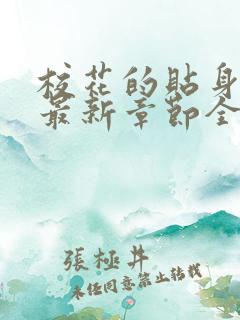 校花的貼身
最新章節全
張極井
未经同意禁止转载